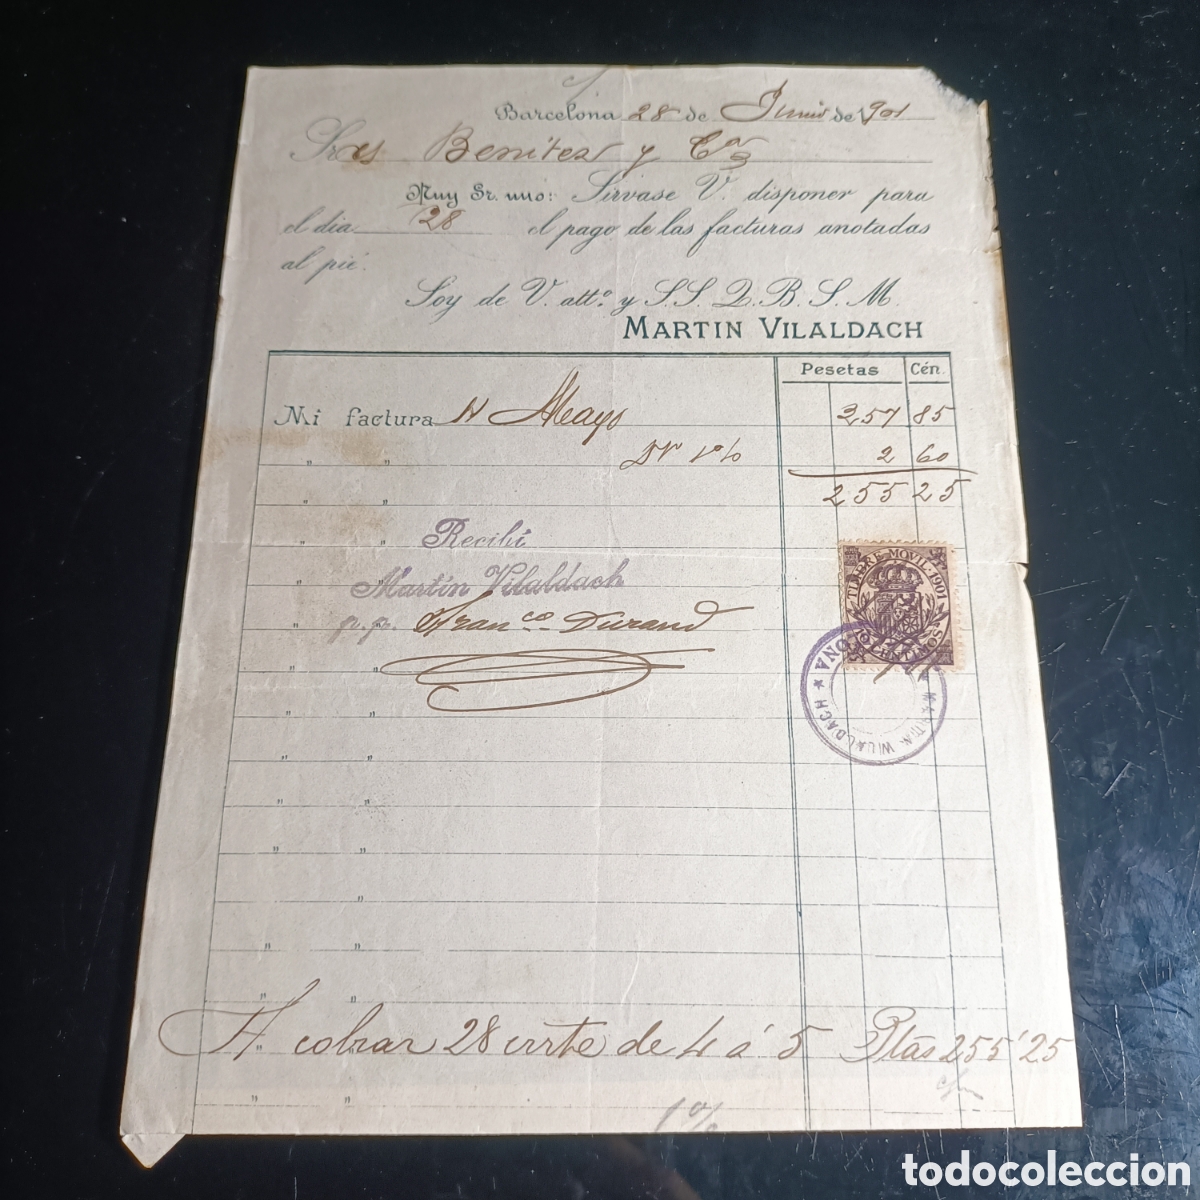 Barcelona 28 de Junio de 1901
Sres Benitez y Cª
Muy Sr. mío: Sírvase V. disponer para
el día 28 el pago de las facturas anotadas
al pié.
Soy de V. attº y S.S.Q.B.S.M.
MARTIN VILALDACH
Pesetas Cén.
Mi factura Mayo 257 85
" " Dto 1% 2 60
255 25
Recibí
Martín Vilaldach
p.p. Franco Durand
TIMBRE MÓVIL·1901
10 CENTIMOS
MARTIN VILALDACH * BARCELONA *
A cobrar 28 crrte de 4 á 5 Ptas 255'25
1%
todocoleccion